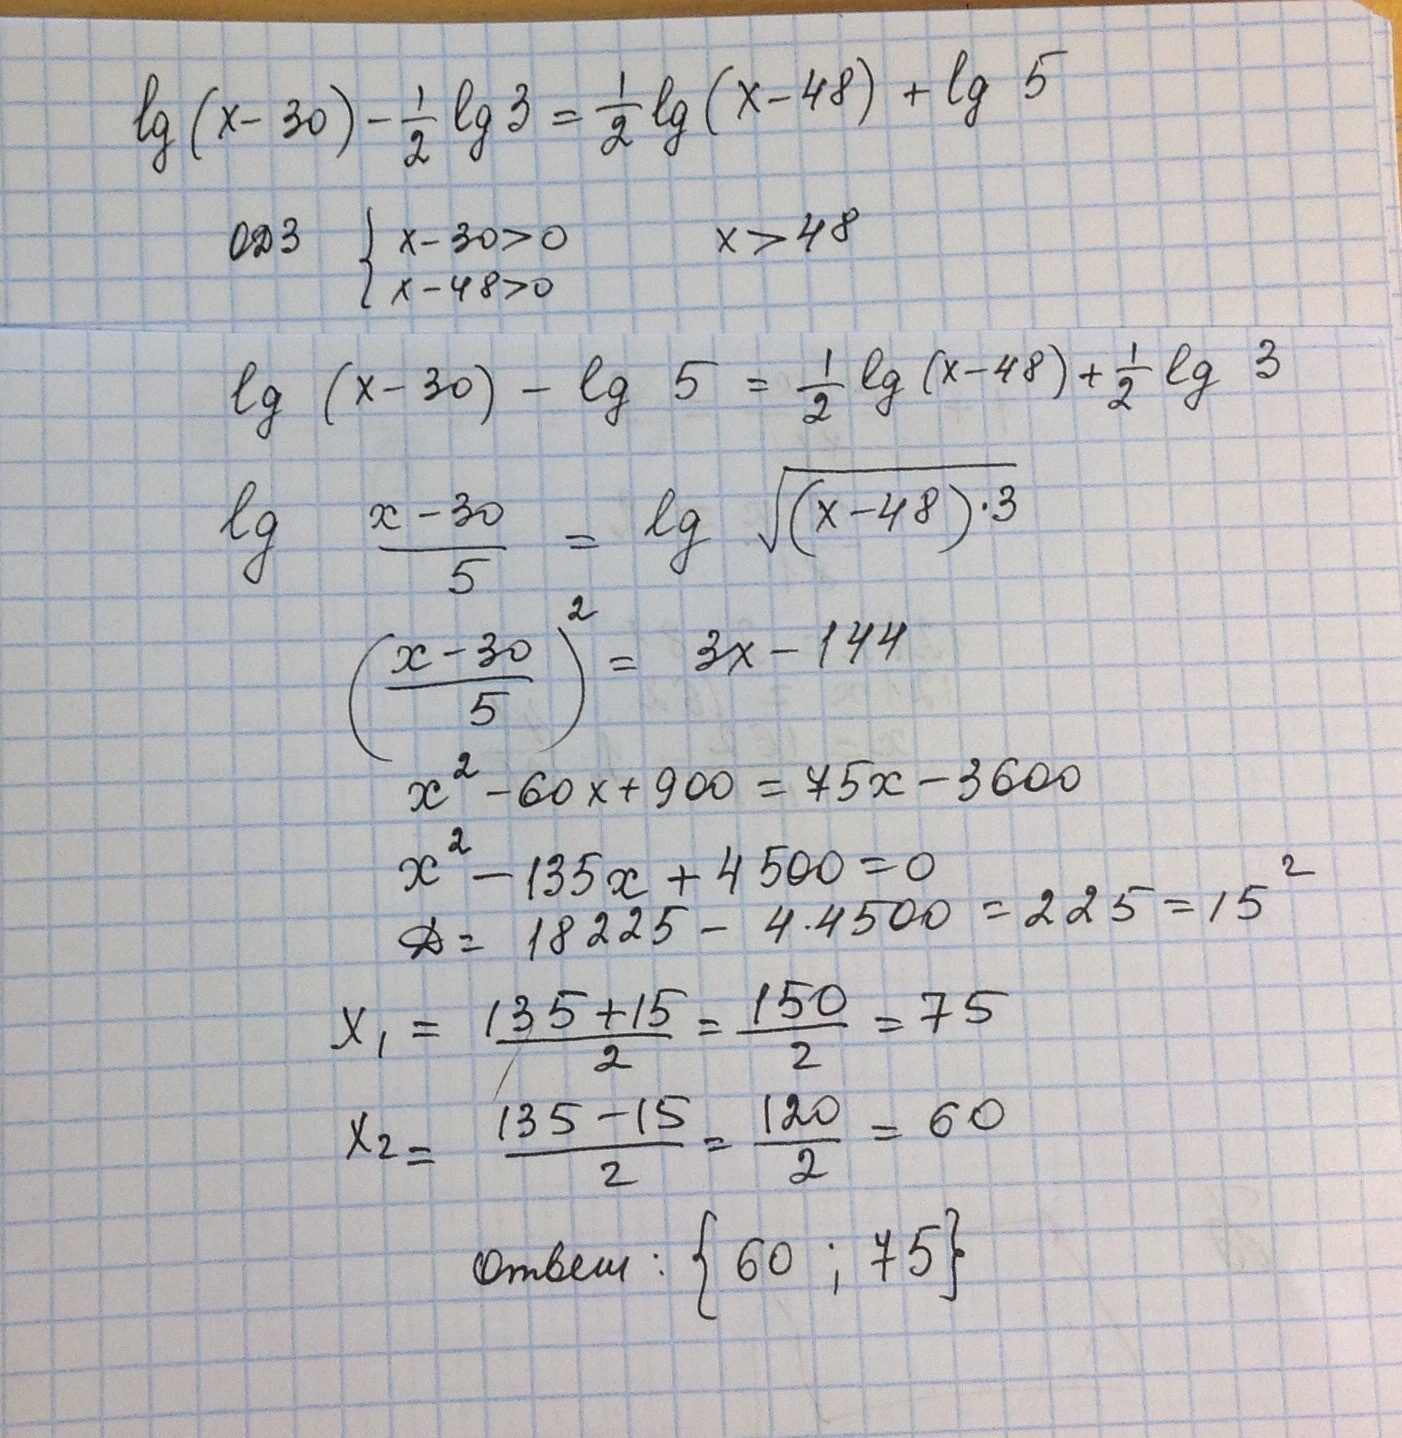 lg(x-30)-1/2 lg3=1/2 lg(x-48)+lg 5
ОДЗ { x-30>0 x>48
x-48>0
lg (x-30) - lg 5 = 1/2 lg(x-48)+1/2 lg 3
lg (x-30)/5 = lg √((x-48)·3)
((x-30)/5)² = 3x-144
x²-60x+900=75x-3600
x²-135x+4500=0
Д= 18225-4·4500=225=15²
x₁ = (135+15)/2 = 150/2 = 75
x₂ = (135-15)/2 = 120/2 = 60
Ответ: {60 ; 75}